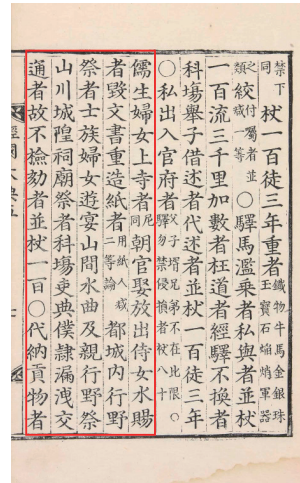 禁下同杖一百徒三年重者鐵物牛馬金銀珠玉寶石焰焇軍器
之類絞付囑者並減一等○驛馬濫乘者私與者並杖
一百流三千里加數者枉道者經驛不換者
科場舉子借述者代述者並杖一百徒三年
○私出入官府者父子壻兄弟不在此限○
儒生婦女上寺者尼同朝官娶放出侍女水賜
者毁文書重造紙者用紙人減二等論都城內行野
祭者士族婦女遊宴山間水曲及親行野祭
山川城隍祠廟祭者科場吏典僕隷漏洩交
通者故不檢劾者並杖一百○代納貢物者